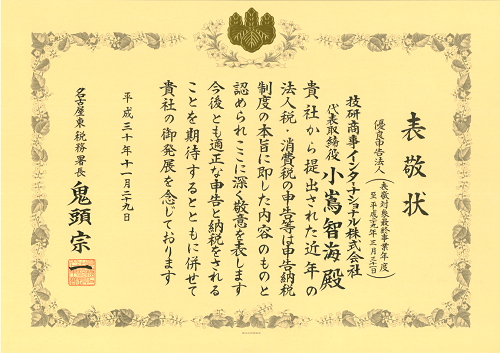 表敬状
優良申告法人
(表敬対象最終事業年度
至 平成二十九年三月三十一日)
技研商事インターナショナル株式会社
代表取締役 小嶌智海 殿
貴社から提出された近年の
法人税・消費税の申告等は申告納税
制度の本旨に即した内容のものと
認められここに深く敬意を表します
今後とも適正な申告と納税をされる
ことを期待するとともに併せて
貴社の御発展を念じております
平成三十年十一月二十九日
名古屋東税務署長 鬼頭 宗